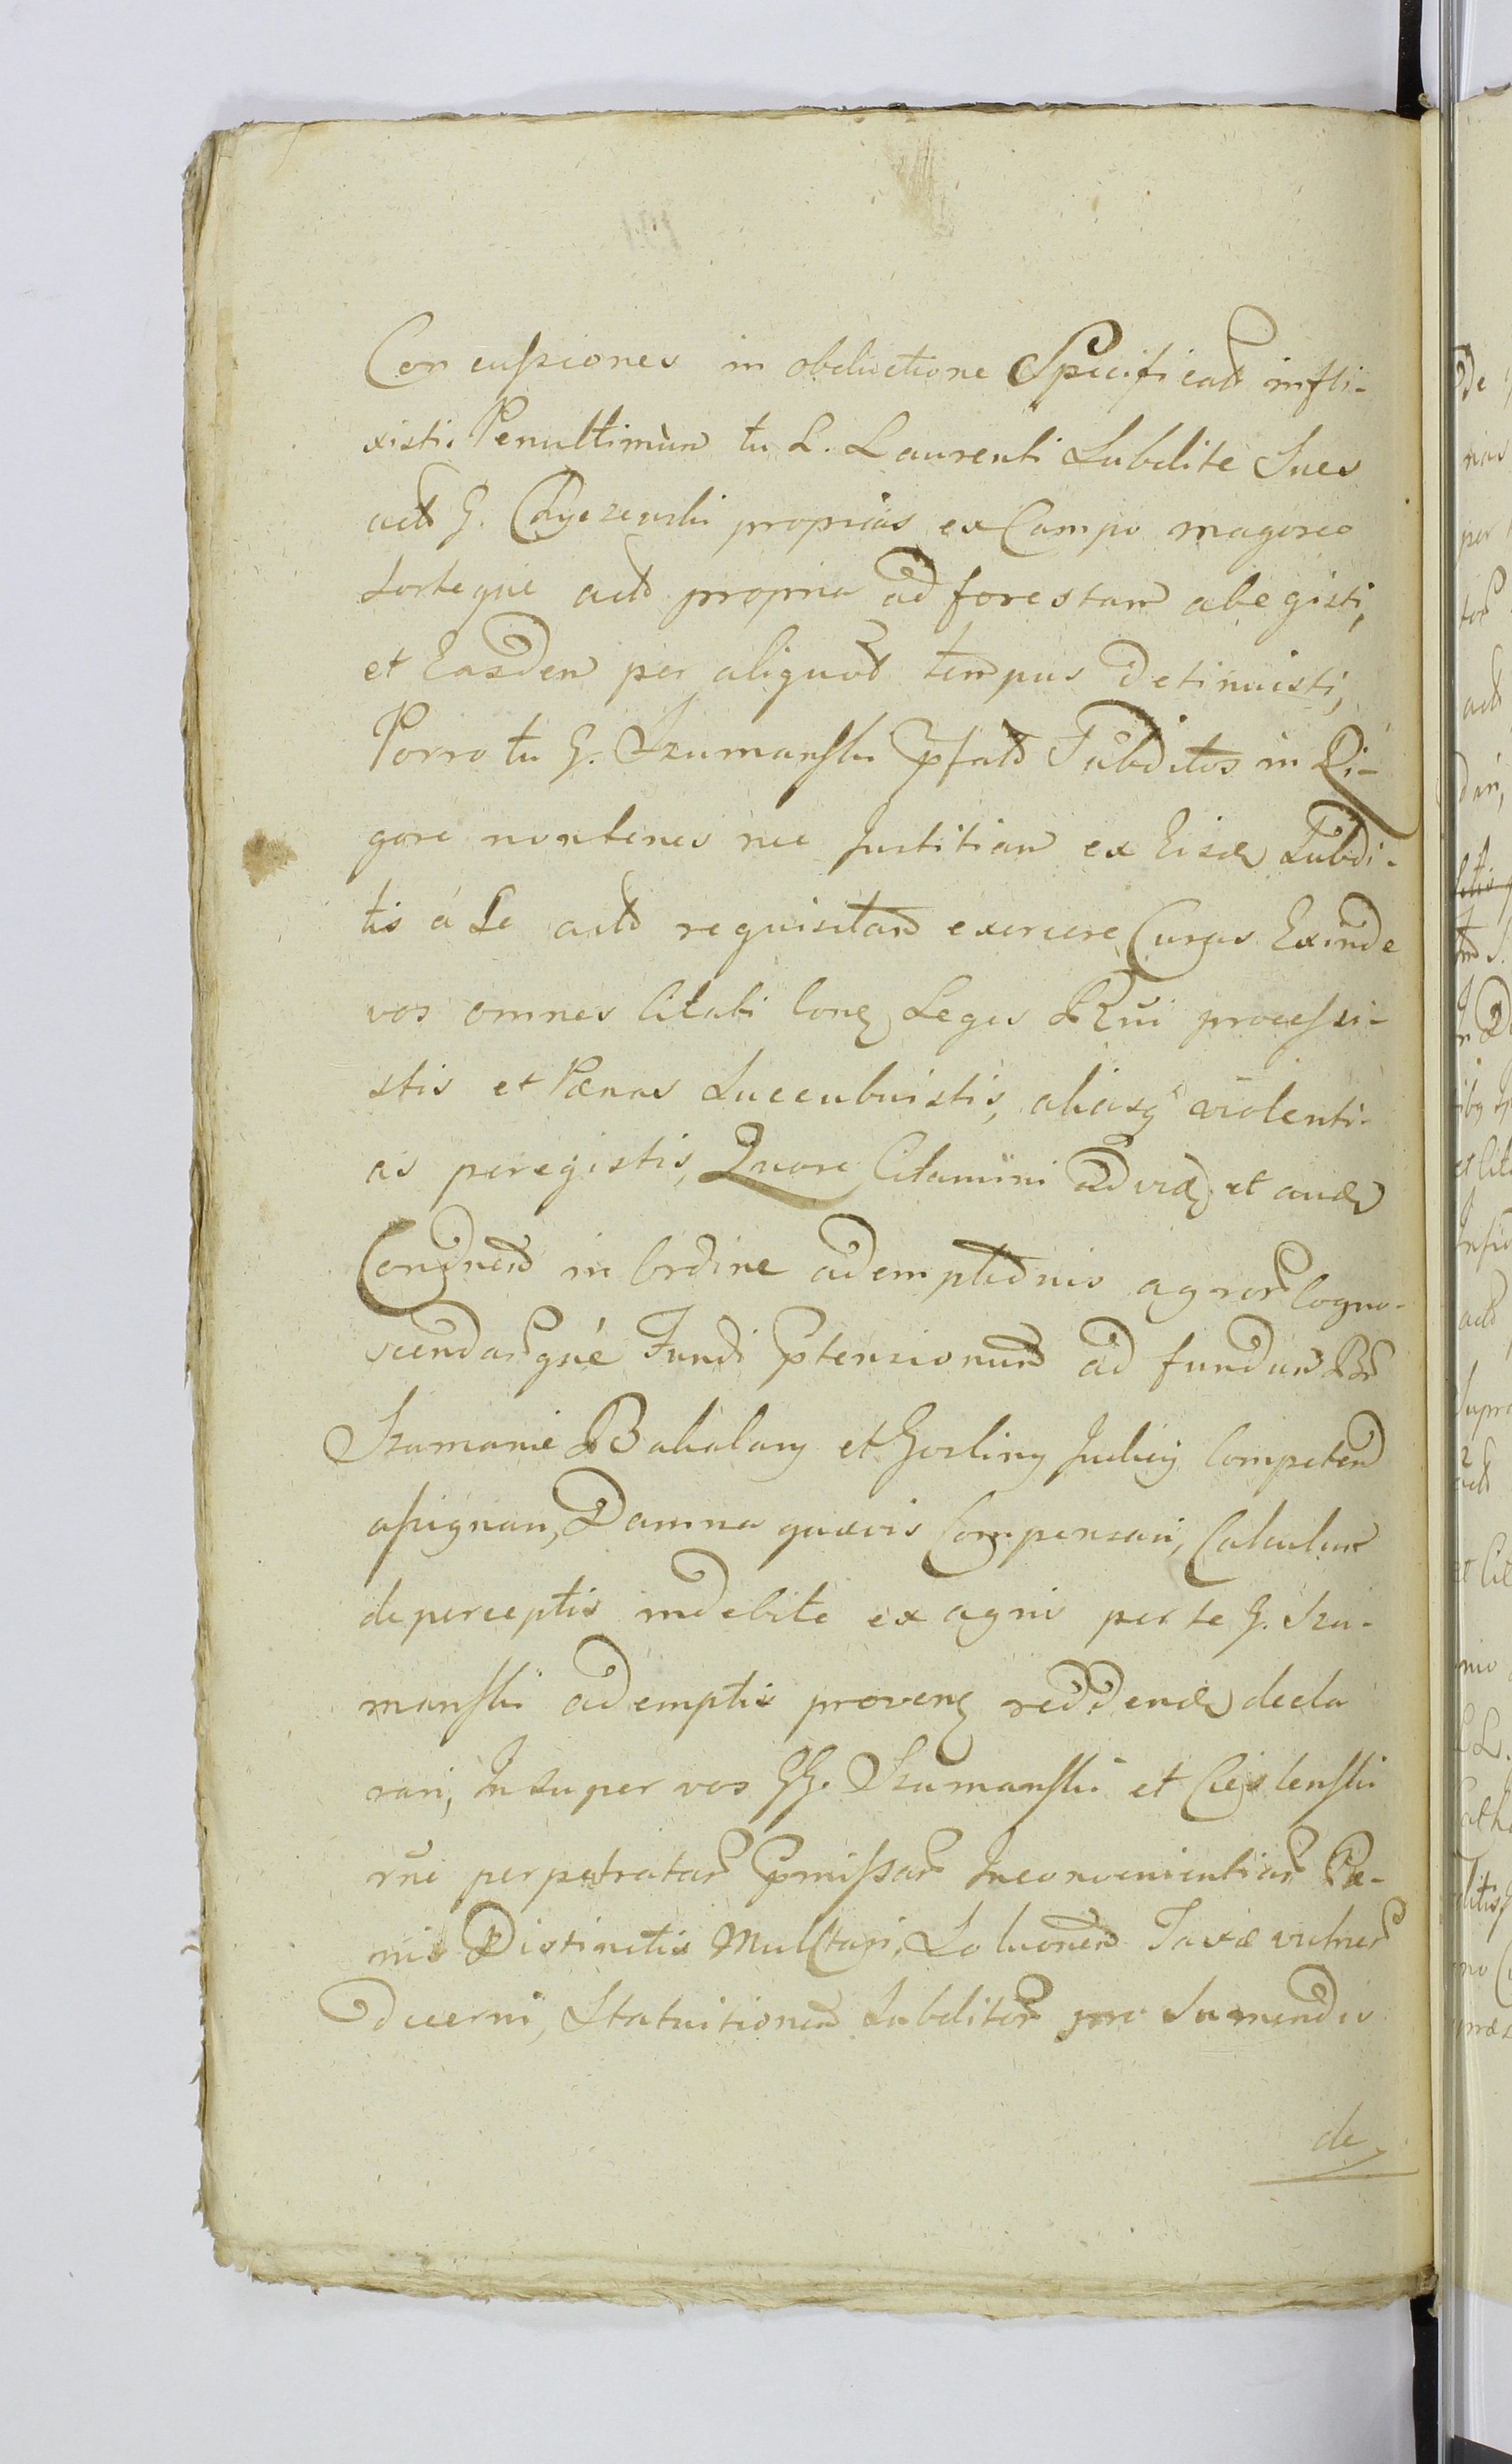 Concussiones in obductione Specificatt infli-
xisti. Penultimùm tu L. Laurenti Subdite Sues
actt G. Chyczewski proprias ex Campo
Sorteque actt propria ad forestam abegisti,
et Easdem per aliquod tempus Detinuisti,
Porro tu G. Szumanski pfatt Subditos in Ri-
gore non tenes nec Justitiam ex Eisd Subdi-
tis á Se actt requisitam exercere Curas Exinde
vos omnes Citati Leges Rni processi-
stis et Pœnas Succubuistis, aliasq violenti-
as peregistis, Quare Citamini ad vid et aud
Condnem in Ordine ademptionis agror Cogno-
scendarqué Fundi ptensionum ad fundum Br
Szumanie Bakalary et Gorliny Judicij Competen
assignari, Damna quævis Compensari, Calculum
de perceptis indebite ex agris per te G. Szu-
manski ademptis proven reddend decla
rari, Insuper vos GG. Szumanski et Cieslenski
rne perpetratar pmissar Inconvenientiar Pœ-
nis Distinctis Mulctari, Soluonem Taxæ vulner
Decerni, Statuitionem Subditor pro Sumendis
de